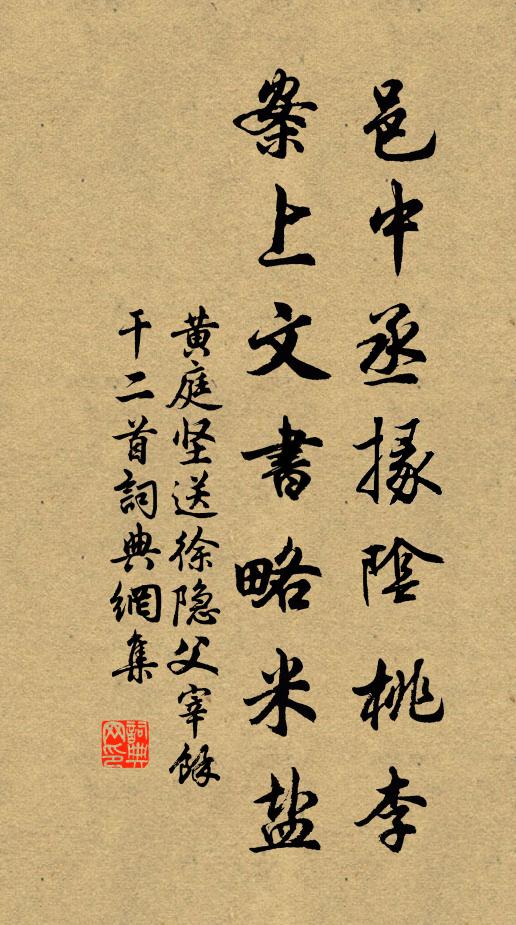 邑中丞掾陰桃李
案上文書略米盐
黄庭坚送徐隐父宰馀
干二首詞典網集
詞典网印